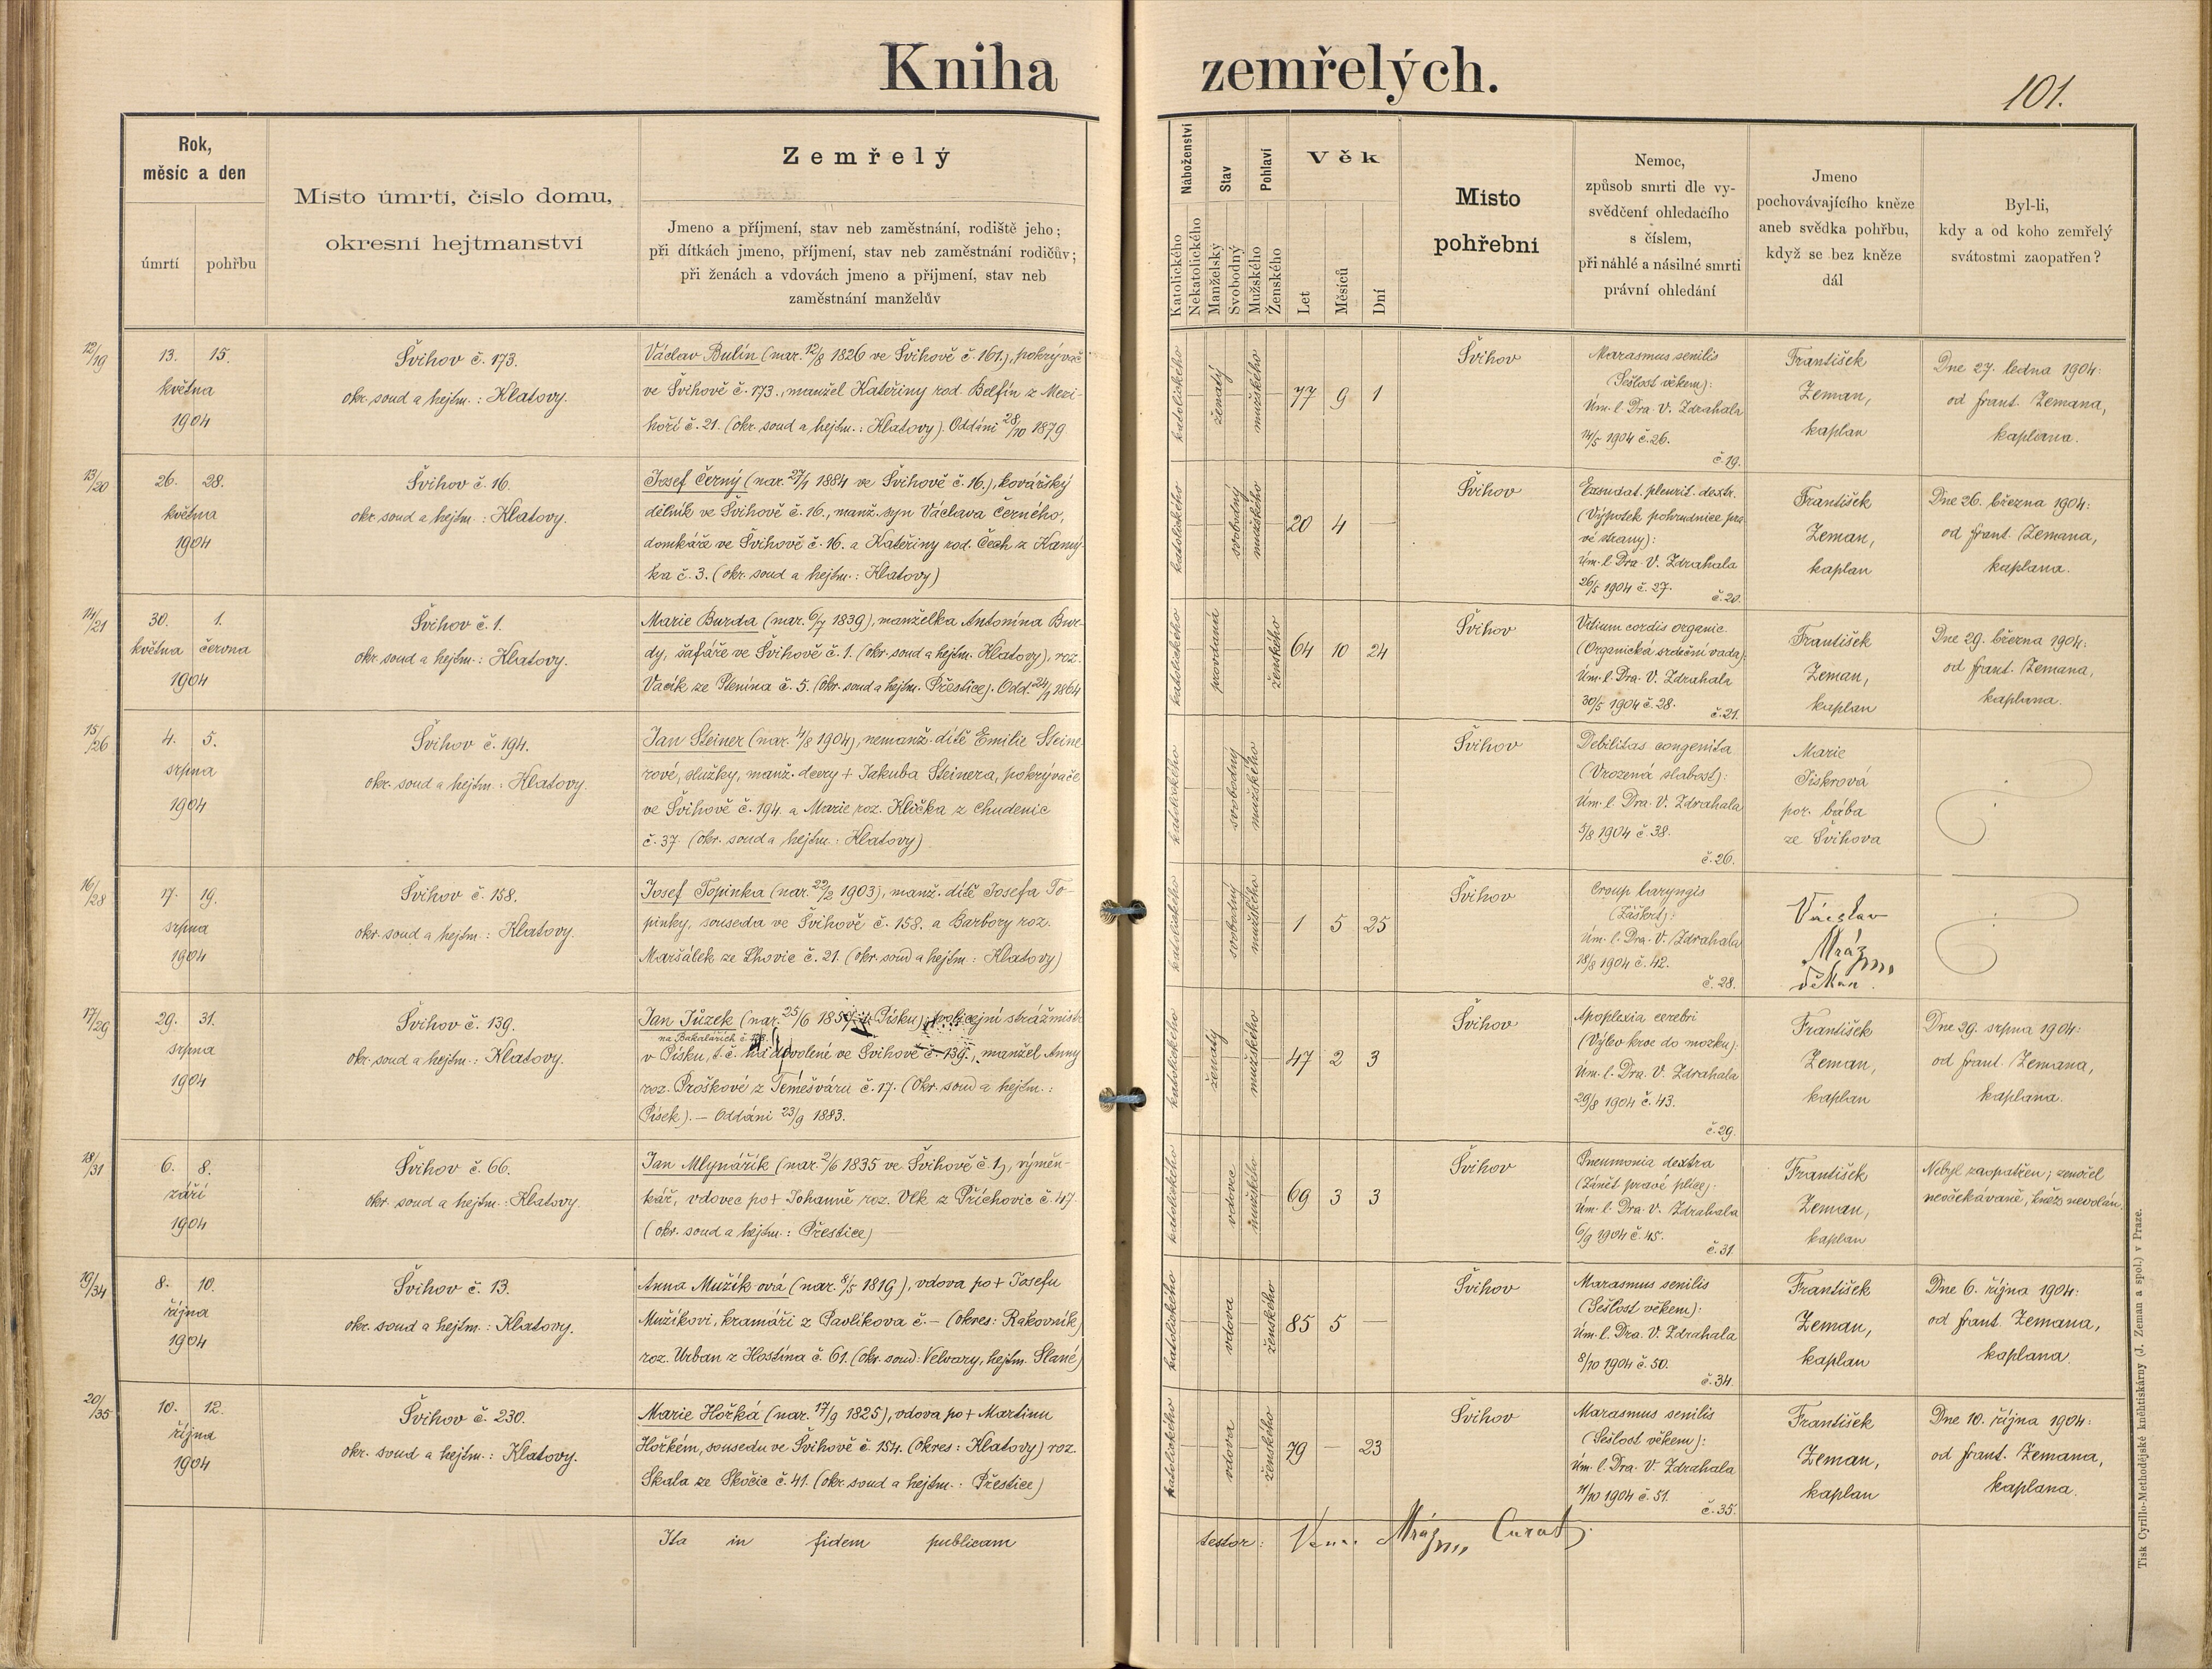 Kniha zemřelých.
101.
Rok,
měsíc a den
úmrtí
pohřbu
Místo úmrtí, číslo domu,
okresní hejtmanství
Zemřelý
Jmeno a příjmení, stav neb zaměstnání, rodiště jeho;
při dítkách jmeno, příjmení, stav neb zaměstnání rodičův;
při ženách a vdovách jmeno a příjmení, stav neb
zaměstnání manželův
Náboženství
Katolického
Nekatolického
Stav
Manželský
Svobodný
Pohlaví
Mužského
Ženského
Věk
Let
Měsíců
Dní
Místo
pohřební
Nemoc,
způsob smrti dle vy-
svědčení ohledacího
s číslem,
při náhlé a násilné smrti
právní ohledání
Jmeno
pochovávajícího kněze
aneb svědka pohřbu,
když se bez kněze
dál
Byl-li,
kdy a od koho zemřelý
svátostmi zaopatřen?
12/19
13. 15.
května
1904
Švihov č. 173.
okr. soud a hejtm.: Klatovy.
Václav Bulín (nar. 12/8 1826 ve Švihově č. 161.), pokrývač
ve Švihově č. 173., manžel Kateřiny rod. Belfín z Mezi-
hoří č. 21. (okr. soud a hejtm.: Klatovy). Oddáni 28/10 1879.
katolického
ženatý
mužského
77 9 1
Švihov
Marasmus senilis
(Sešlost věkem):
Úm. l. Dra. V. Zdrahala
14/5 1904 č. 26.
č. 19.
František
Zeman,
kaplan
Dne 27. ledna 1904:
od frant. Zemana,
kaplana.
13/20
26. 28.
května
1904
Švihov č. 16.
okr. soud a hejtm.: Klatovy.
Josef Černý (nar. 27/1 1884 ve Švihově č. 16.), kovářský
dělník ve Švihově č. 16., manž. syn Václava Černého,
domkáře ve Švihově č. 16. a Kateřiny rod. Čech z Kamý-
ka č. 3. (okr. soud a hejtm.: Klatovy)
katolického
svobodný
mužského
20 4 —
Švihov
Exsudat. pleurit. dextr.
(Výpotek pohrudnice pra-
vé strany):
Úm. l. Dra. V. Zdrahala
26/5 1904 č. 27.
č. 20.
František
Zeman,
kaplan
Dne 26. března 1904:
od frant. Zemana,
kaplana.
14/21
30. 1.
května června
1904
Švihov č. 1.
okr. soud a hejtm.: Klatovy.
Marie Burda (nar. 6/7 1839), manželka Antonína Bur-
dy, šafáře ve Švihově č. 1. (okr. soud a hejtm. Klatovy), roz.
Vacík ze Ptenína č. 5. (okr. soud a hejtm. Přestice). Odd. 24/1 1864
katolického
provdaná
ženského
64 10 24
Švihov
Vitium cordis organic.
(Organická srdeční vada):
Úm. l. Dra. V. Zdrahala
30/5 1904 č. 28.
č. 21.
František
Zeman,
kaplan
Dne 29. března 1904:
od frant. Zemana,
kaplana.
15/26
4. 5.
srpna
1904
Švihov č. 194.
okr. soud a hejtm.: Klatovy.
Jan Steiner (nar. 4/8 1904), nemanž. dítě Emilie Steine-
rové, služky, manž. dcery + Jakuba Steinera, pokrývače
ve Švihově č. 194. a Marie roz. Klička z Chudenic
č. 37 (okr. soud a hejtm.: Klatovy)
katolického
svobodný
mužského
Švihov
Debilitas congenita
(Vrozená slabost):
Úm. l. Dra. V. Zdrahala
5/8 1904 č. 38.
č. 26.
Marie
Jiskrová
por. bába
ze Švihova
16/28
17. 19.
srpna
1904
Švihov č. 158.
okr. soud a hejtm.: Klatovy.
Josef Topinka (nar. 22/2 1903), manž. dítě Josefa To-
pinky, souseda ve Švihově č. 158. a Barbory roz.
Maršálek ze Lhovic č. 21. (okr. soud a hejtm.: Klatovy)
katolického
svobodný
mužského
1 5 25
Švihov
Croup laryngis
(Záškrt):
Úm. l. Dra. V. Zdrahala
18/8 1904 č. 42.
č. 28.
Václav
Mráz
děkan.
17/29
29. 31.
srpna
1904
Švihov č. 139.
okr. soud a hejtm.: Klatovy.
Jan Jůzek (nar. 25/6 1857 v Písku), policejní strážmistr
na Bakalářích č.
v Písku, t. č. na dovolené ve Švihově č. 139., manžel Anny
roz. Proškové z Temešváru č. 17. (okr. soud a hejtm.:
Písek). — Oddáni 23/9 1883.
katolického
ženatý
mužského
47 2 3
Švihov
Apoplexia cerebri
(Výlev krve do mozku):
Úm. l. Dra. V. Zdrahala
29/8 1904 č. 43.
č. 29.
František
Zeman,
kaplan
Dne 29. srpna 1904:
od frant. Zemana,
kaplana.
18/31
6. 8.
září
1904
Švihov č. 66.
okr. soud a hejtm.: Klatovy.
Jan Mlynářík (nar. 2/6 1835 ve Švihově č. 1), výměn-
kář, vdovec po + Johanně roz. Vlk z Příchovic č. 47
(okr. soud a hejtm.: Přestice)
katolického
vdovec
mužského
69 3 3
Švihov
Pneumonia dextra
(Zánět pravé plíce):
Úm. l. Dra. V. Zdrahala
6/9 1904 č. 45.
č. 31.
František
Zeman,
kaplan
Nebyl zaopatřen; zemřel
neočekávaně, kněz nevolán.
19/34
8. 10.
října
1904
Švihov č. 13.
okr. soud a hejtm.: Klatovy.
Anna Mužíková (nar. 8/5 1819), vdova po + Josefu
Mužíkovi, kramáři z Pavlíkova č. — (okres: Rakovník)
roz. Urban z Hostína č. 61. (okr. soud: Velvary, hejtm. Slané)
katolického
vdova
ženského
85 5 —
Švihov
Marasmus senilis
(Sešlost věkem):
Úm. l. Dra. V. Zdrahala
8/10 1904 č. 50.
č. 34.
František
Zeman,
kaplan
Dne 6. října 1904:
od frant. Zemana,
kaplana.
20/35
10. 12.
října
1904
Švihov č. 230.
okr. soud a hejtm.: Klatovy.
Marie Hořká (nar. 17/9 1825), vdova po + Martinu
Hořkém, sousedu ve Švihově č. 154. (okres: Klatovy) roz.
Skala ze Skočic č. 41. (okr. soud a hejtm.: Přestice)
katolického
vdova
ženského
79 — 23
Švihov
Marasmus senilis
(Sešlost věkem):
Úm. l. Dra. V. Zdrahala
11/10 1904 č. 51.
č. 35.
František
Zeman,
kaplan
Dne 10. října 1904:
od frant. Zemana,
kaplana.
Ita in fidem publicam testor: Venc. Mráz Curat.
Tisk Cyrillo-Methodějské kněhtiskárny (J. Zeman a spol.) v Praze.